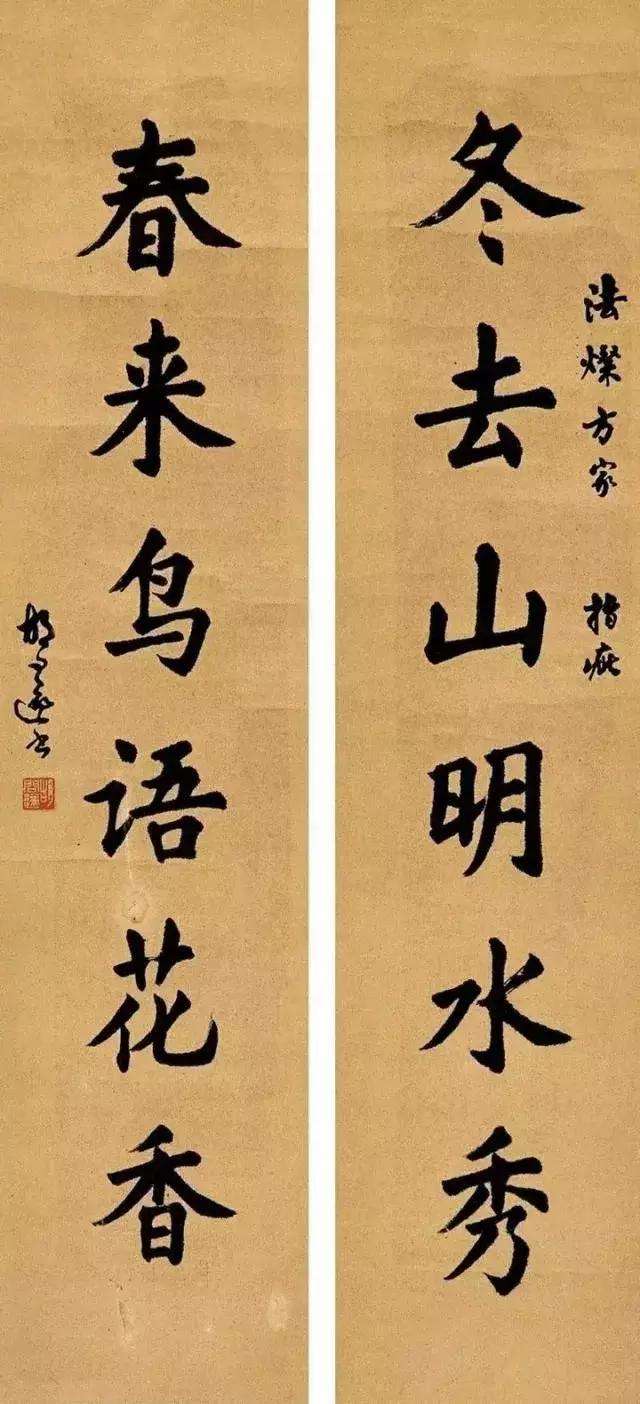 法燦方家 指疵
冬去山明水秀
春来鸟语花香
胡问遂书